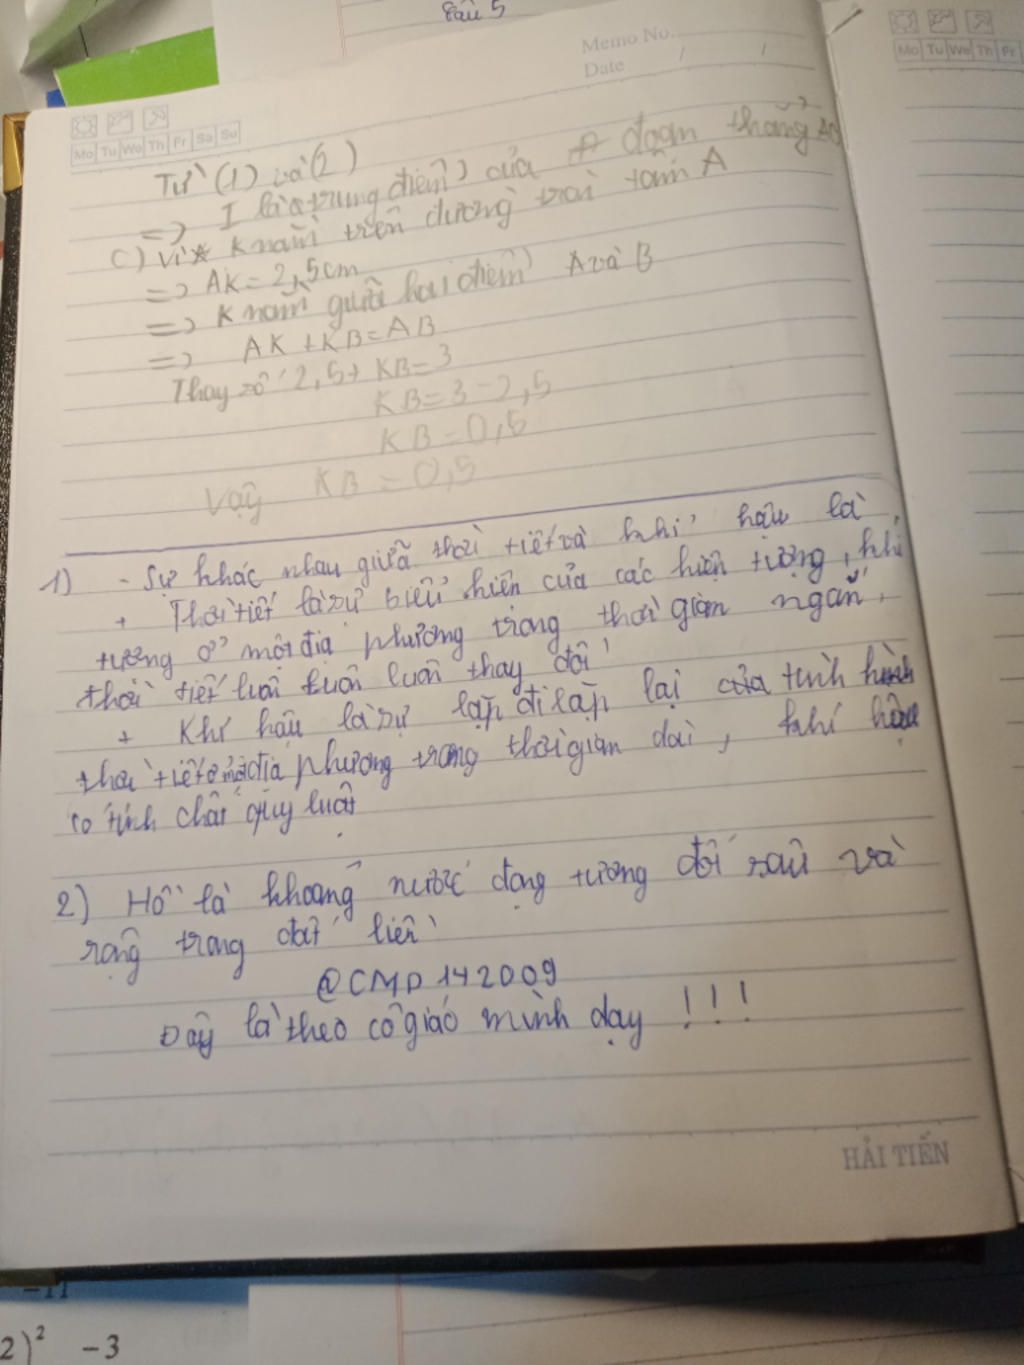 Câu 5
Memo No.
Date / /
Mo Tu We Th Fr Sa Su
Mo Tu We Th Fr
Từ (1) và (2)
=> I là trung điểm của đoạn thẳng
C) Vì K nằm trên đường tròn tâm A
=> AK = 2,5cm
=> K nằm giữa hai điểm A và B
=> AK + KB = AB
Thay số 2,5 + KB = 3
KB = 3 - 2,5
KB = 0,5
Vậy KB = 0,5
1) - Sự khác nhau giữa thời tiết và khí hậu là
+ Thời tiết là sự biểu hiện của các hiện tượng, khí
tượng ở một địa phương trong thời gian ngắn,
thời tiết luôn luôn luôn thay đổi
+ Khí hậu là sự lặp đi lặp lại của tình hình
thời tiết ở một địa phương trong thời gian dài, khí hậu
có tính chất quy luật
2) Hồ là khoảng nước đọng tương đối sâu và
rộng trong đất liền
@CMD142009
Đây là theo cô giáo mình dạy !!!
HẢI TIẾN
-11
2)² -3